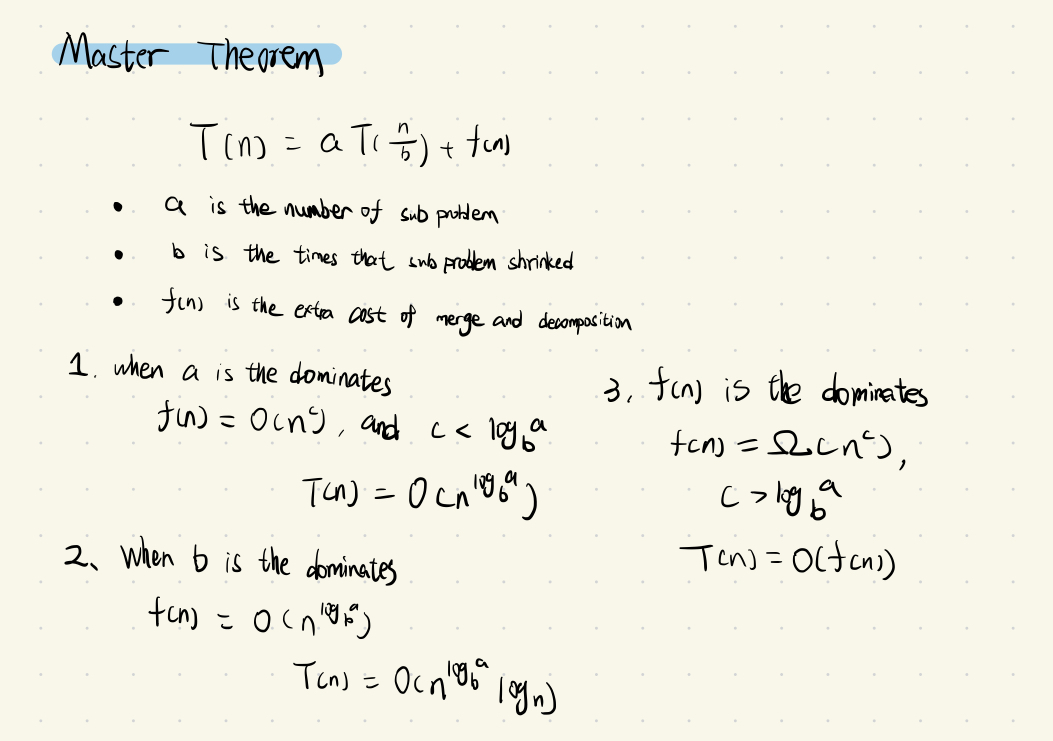 Master Theorem
T(n) = a T(n/b) + f(n)
• a is the number of sub problem
• b is the times that sub problem shrinked
• f(n) is the extra cost of merge and decomposition
1. when a is the dominates
f(n) = O(n^c), and c < log_b^a
T(n) = O(n^{log_b^a})
2、 When b is the dominates
f(n) = O(n^{log_b^a})
T(n) = O(n^{log_b^a} log n)
3, f(n) is the dominates
f(n) = Ω(n^c),
c > log_b^a
T(n) = O(f(n))